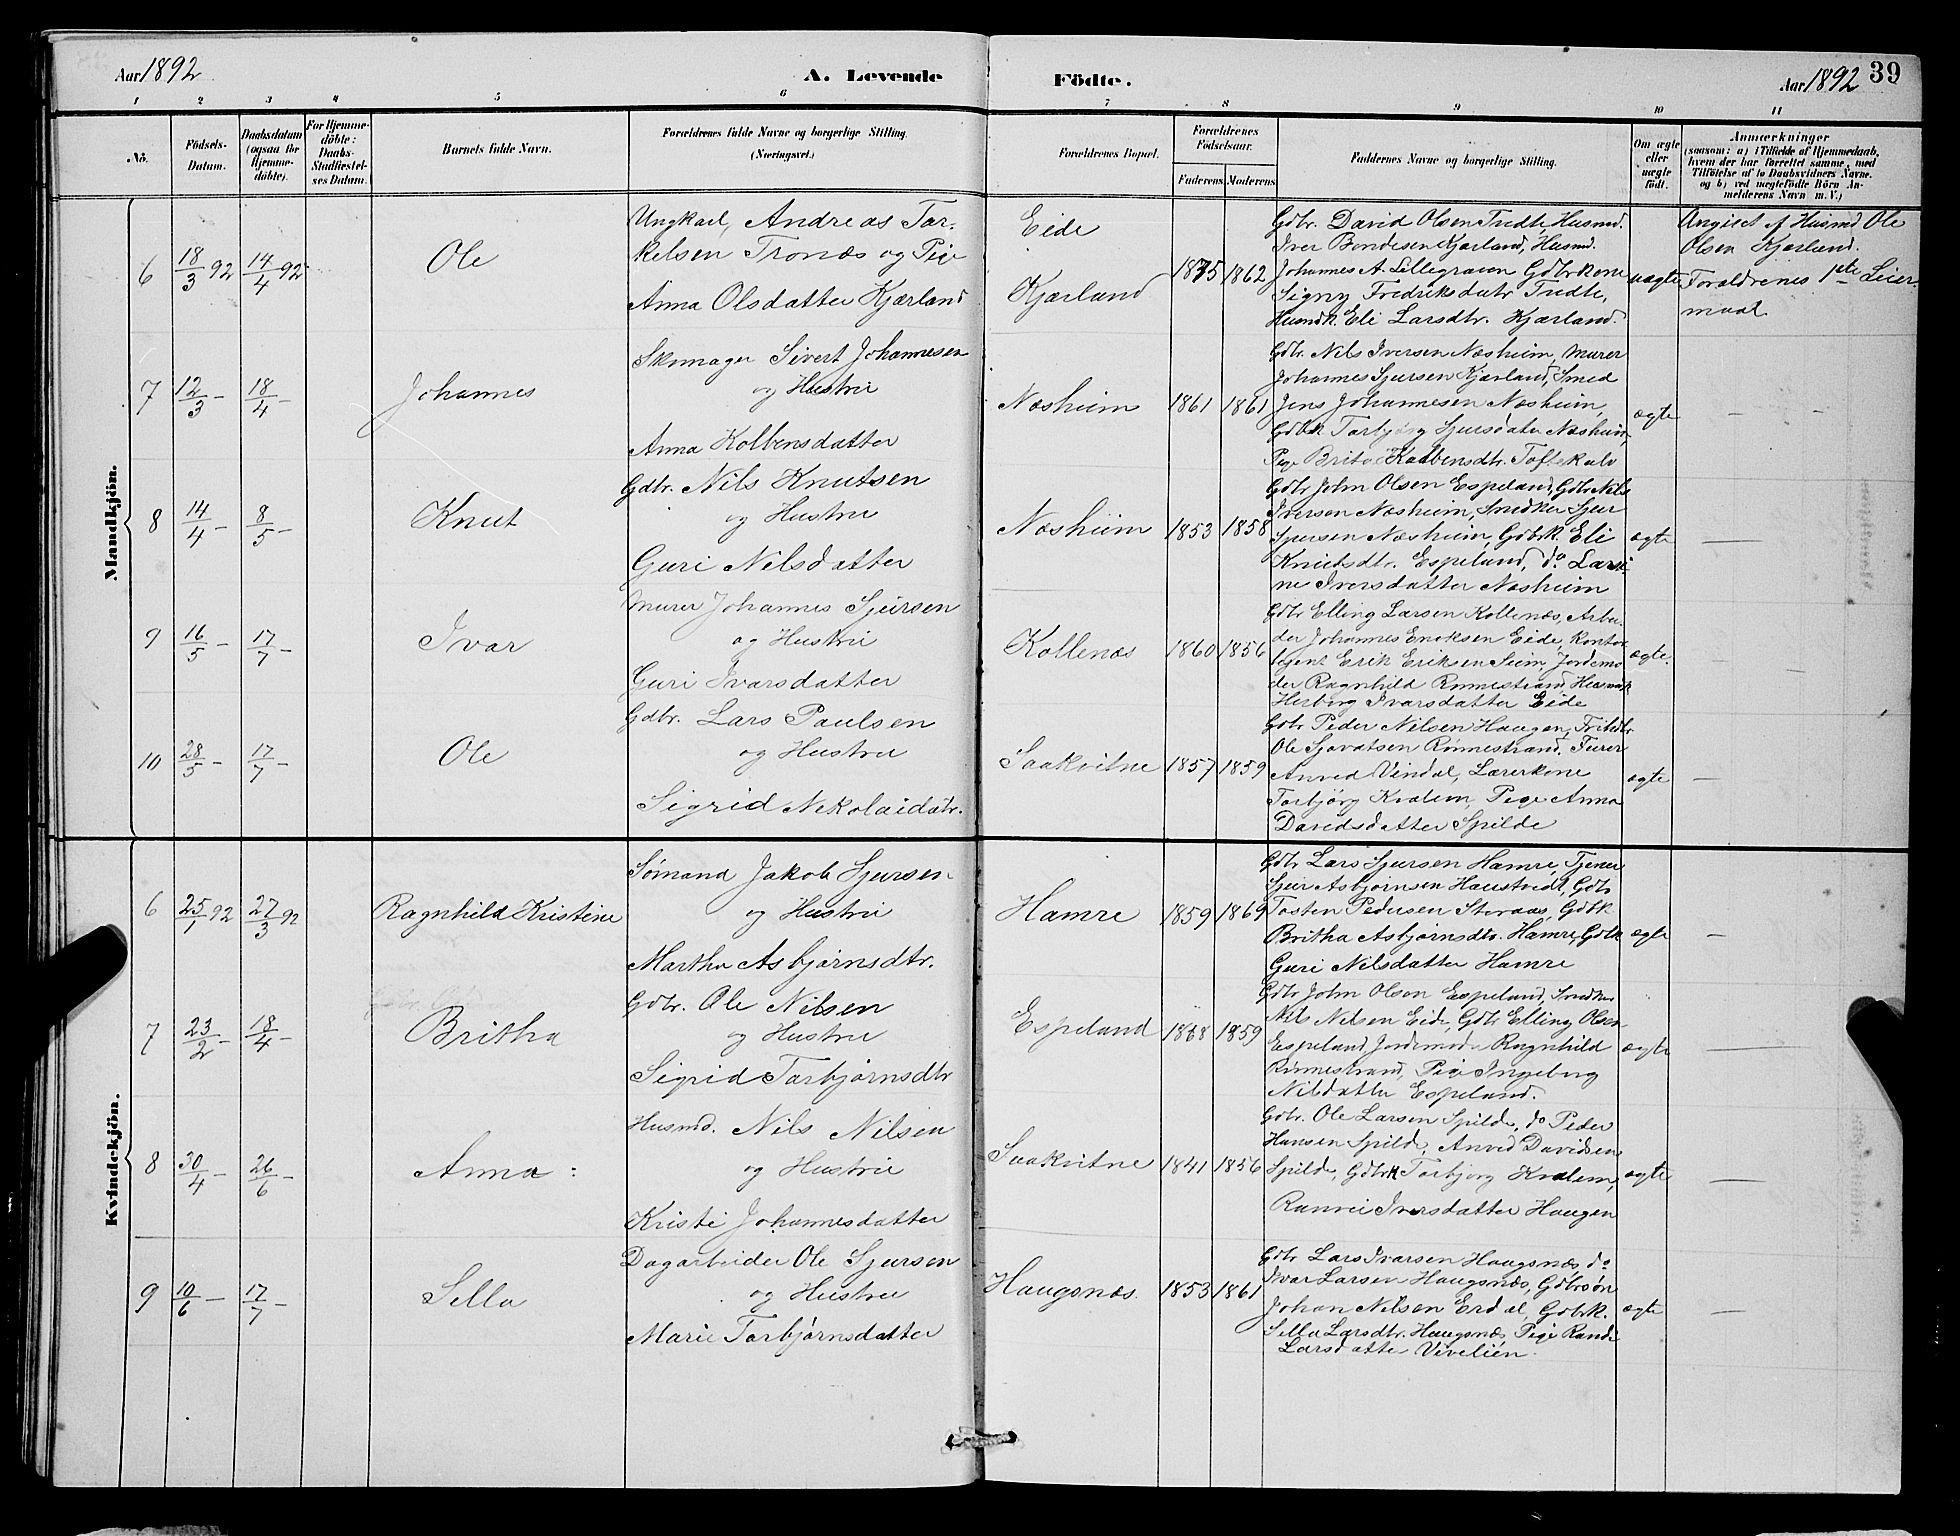 Aar 1892
A. Levende Födte.
Aar 1892
39
1 2 3 4 5 6 7 8 9 10 11
No.
Födsels-
Datum.
Daabsdatum
(ogsaa for
Hjemme-
döbte).
For Hjemme-
döbte:
Daabs-
Stadfæstel-
ses Datum.
Barnets fulde Navn.
Forældrenes fulde Navne og borgerlige Stilling.
(Næringsvei.)
Forældrenes Bopæl.
Forældrenes
Födselsaar.
Faderens Moderens
Faddernes Navne og borgerlige Stilling.
Om ægte
eller
uægte
födt.
Anmærkninger
(saasom: a) i Tilfælde af Hjemmedaab,
hvem der har forrettet samme, med
Tilföielse af to Daabsvidners Navne.
og b) ved uægtefödte Börn An-
melderens Navn m. V.)
Mandkjön.
6 18/3 92 14/4 92
Ole
Ungkarl, Andreas Tor-
kelsen Tronæs og Pige
Anna Olsdatter Kjærland
Eide
Kjærland
1875 1862
Gdbr. David Olsen Tredte Husmd.
Iver Bendesen Kjærland, Husmd.
Johannes A. Lillegraven Gdbrkone
Signy Fredriksdatr Tredte,
Husmdk. Eli Larsdtr. Kjærland.
uægte
Angivet af Husmd Ole
Olsen Kjærland.
Forældrenes 1ste Leier-
maal
7 12/3 - 18/4 -
Johannes
Skomager Sivert Johannesen
og Hustru
Anna Kolbensdatter
Næsheim
1861 1861
Gdbr. Nils Iversen Næsheim, Murer
Johannes Sjursen Kjærland, Smed
Jens Johannesen Næsheim,
Gdbk Torbjørg Sjursdatr Næsheim,
Pige Brita Kolbensdtr. Toftekalv
ægte
— —
8 14/4 - 8/5 -
Knut
Gdbr. Nils Knutsen
og Hustru
Guri Nilsdatter
Næsheim
1853 1858
Gdbr John Olsen Espeland, Gdbr Nils
Iversen Næsheim, Snedker Sjur
Sjursen Næsheim, Gdbrk. Eli
Knutsdtr. Espeland, do Larsi
ne Iversdatter Næsheim
ægte
—
9 16/5 - 17/7 -
Ivar
Murer Johannes Sjursen
og Hustru
Guri Ivarsdatter
Kollenæs
1860 1856
Gdbr Elling Larsen Kollenæs, Arbei-
der Johannes Enoksen Eide, Kontor
Erik Eriksen Seim, Jordemo
der Ragnhild Rinnestrand,
Herborg Ivarsdatter Eide
ægte.
—
10 28/5 - 17/7 -
Ole
Gdbr. Lars Paulsen
og Hustru
Sigrid Nikolaidatr.
Saakvitne
1857 1859
Gdbr Peder Nilsen Haugen,
Ole Sjovatsen Rinnestrand, Furer
Anved Vindal, Lærerkone
Torbjörg Kvalem, Pige Anna
Davidsdatter Spilde
ægte
—
Kvindekjön.
6 25/1 92 27/3 92
Ragnhild Kristine
Sømand Jakob Sjursen
og Hustru
Martha Asbjørnsdtr.
Hamre
1859 1869
Gdbr Lars Sjursen Hamre, Tjener
Sjur Asbjørnsen Haustveidt, Gdbr
Tosten Pedersen Storaas, Gdbk
Britha Asbjørnsdtr. Hamre, Gdbk
Guri Nilsdatter Hamre
ægte
—
7 23/2 - 18/4 -
Britha
Gdbr. Ole Nilsen
og Hustru
Sigrid Torbjørnsdtr
Espeland
1868 1859
Gdbr John Olsen Espeland, Snedker
Nils Nilsen Eide, Gdbr Elling Olsen
Espeland, Jordemoder Ragnhild
Rinnestrand, Pige Ingeborg
Nilsdatter Espeland.
ægte
—
8 30/4 - 26/6 -
Anna :
Husmd. Nils Nilsen
og Hustru
Kristi Johannesdatter
Saakvitne
1841 1856
Gdbr. Ole Larsen Spilde, do Peder
Hansen Spilde, Anved Davidsen
Spilde, Gdbrk Torbjorg Kvalem,
Ranvei Iversdatter Haugen
ægte
—
9 10/6 - 17/7 -
Sella
Dagarbeider Ole Sjursen
og Hustru
Marie Torbjørnsdatter
Haugsnæs.
1853 1861
Gdbr Lars Ivarsen Haugsnæs, do
Ivar Larsen Haugsnæs, Gdbrsøn
Johan Nilsen Erdal, Gdbrk.
Sella Larsdtr. Haugsnæs, Pige Randi
Larsdatter Vivelien.
ægte
—